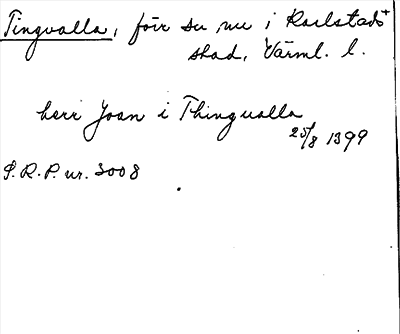 Tingvalla, förr sn, nu i Karlstads+
stad, Värml. l.
herr Joan i Thingualla
25/8 1399
S.R.P. nr. 3008